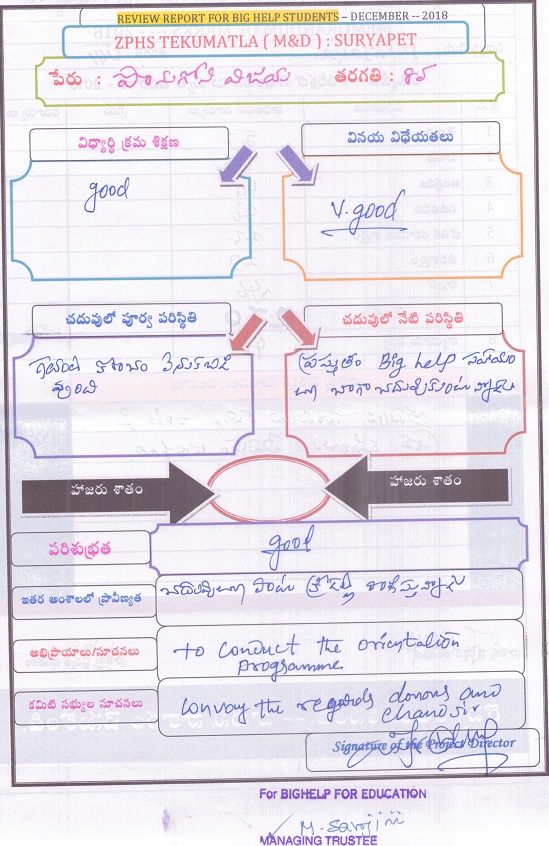 REVIEW REPORT FOR BIG HELP STUDENTS – DECEMBER -- 2018
ZPHS TEKUMATLA ( M&D ) : SURYAPET
పేరు : విజయ తరగతి :
విద్యార్థి క్రమ శిక్షణ
వినయ విధేయతలు
good
V. good
చదువులో పూర్వ పరిస్థితి
చదువులో నేటి పరిస్థితి
వెనుకబడి
వుంది
ప్రస్తుతం Big help సహాయం
బాగా
హాజరు శాతం
హాజరు శాతం
పరిశుభ్రత
good
ఇతర అంశాలలో ప్రావీణ్యత
అభిప్రాయాలు/సూచనలు
to conduct the orientation
programme
కమిటి సభ్యుల సూచనలు
Convay the regards donors and
chand sir
Signature of the Project Director
For BIGHELP FOR EDUCATION
MANAGING TRUSTEE